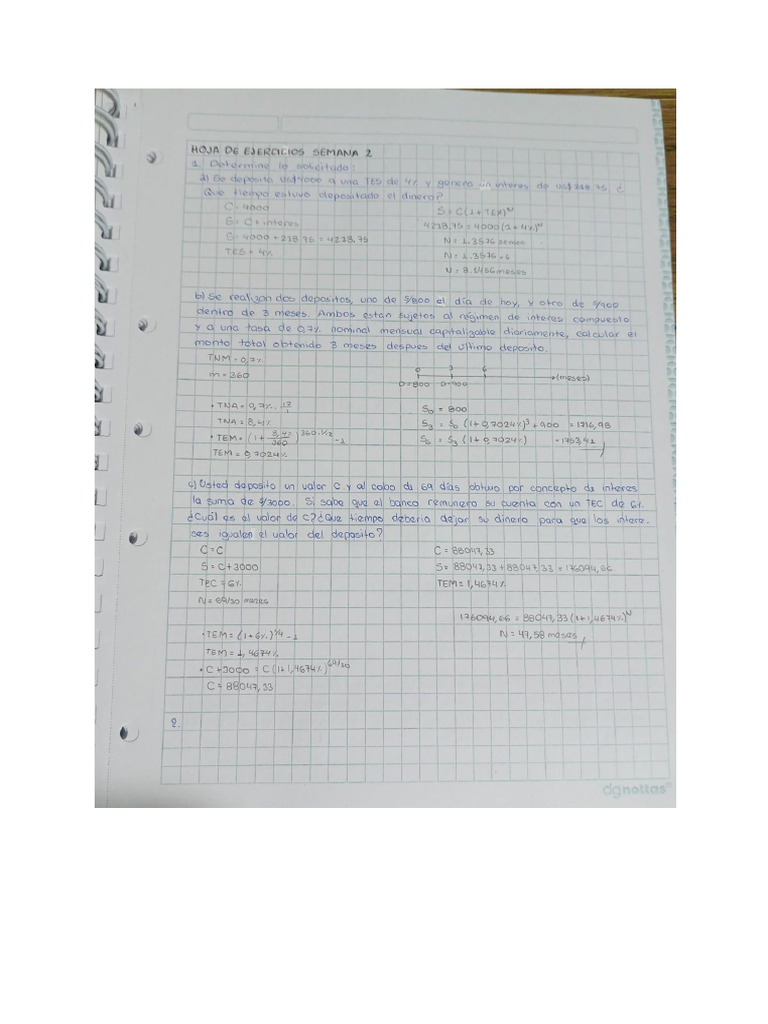 HOJA DE EJERCICIOS SEMANA 2
1. Determine lo solicitado:
a) Se deposita us$4000 a una TES de 4% y generó un interes de us$ 218.75 ¿
Que tiempo estuvo depositado el dinero?
C = 4000
S = C + interes
S = 4000 + 218,75 = 4218,75
TES + 4%
S = C(1+TEM)^N
4218,75 = 4000(1+4%)^N
N = 1.3576 semes
N = 1.3576 · 6
N = 8.1456 meses
b) Se realizan dos depositos, uno de S/800 el día de hoy, y otro de S/900
dentro de 3 meses. Ambos estan sujetos al régimen de interes compuesto
y a una tasa de 0,7% nominal mensual capitalizable diariamente, calcular el
monto total obtenido 3 meses despues del ultimo deposito.
TNM = 0,7%
m = 360
· TNA = 0,7% · 12/1
TNA = 8,4%
· TEM = (1 + 8,4%/360)^360·1/12 - 1
TEM = 0,7024%
0 3 6
D=800 D=900 (meses)
S0 = 800
S3 = S0 (1+0,7024%)^3 + 900 = 1716,98
S6 = S3 (1+0,7024%) = 1753,42
c) Usted deposito un valor C y al cabo de 69 días obtuvo por concepto de interes
la suma de $/3000. Si sabe que el banco remunero su cuenta con un TEC de 6%.
¿Cuál es el valor de C? ¿Que tiempo deberia dejar su dinero para que los intere-
ses igualen el valor del deposito?
C = C
S = C+3000
TEC = 6%
N = 69/30 meses
· TEM = (1+6%)^1/4 - 1
TEM = 1,4674%
· C+3000 = C(1+1,4674%)^69/30
C = 88047,33
C = 88047,33
S = 88047,33 + 88047,33 = 176094,66
TEM = 1,4674%
176094,66 = 88047,33(1+1,4674%)^N
N = 47,58 meses
2.
dgnottas